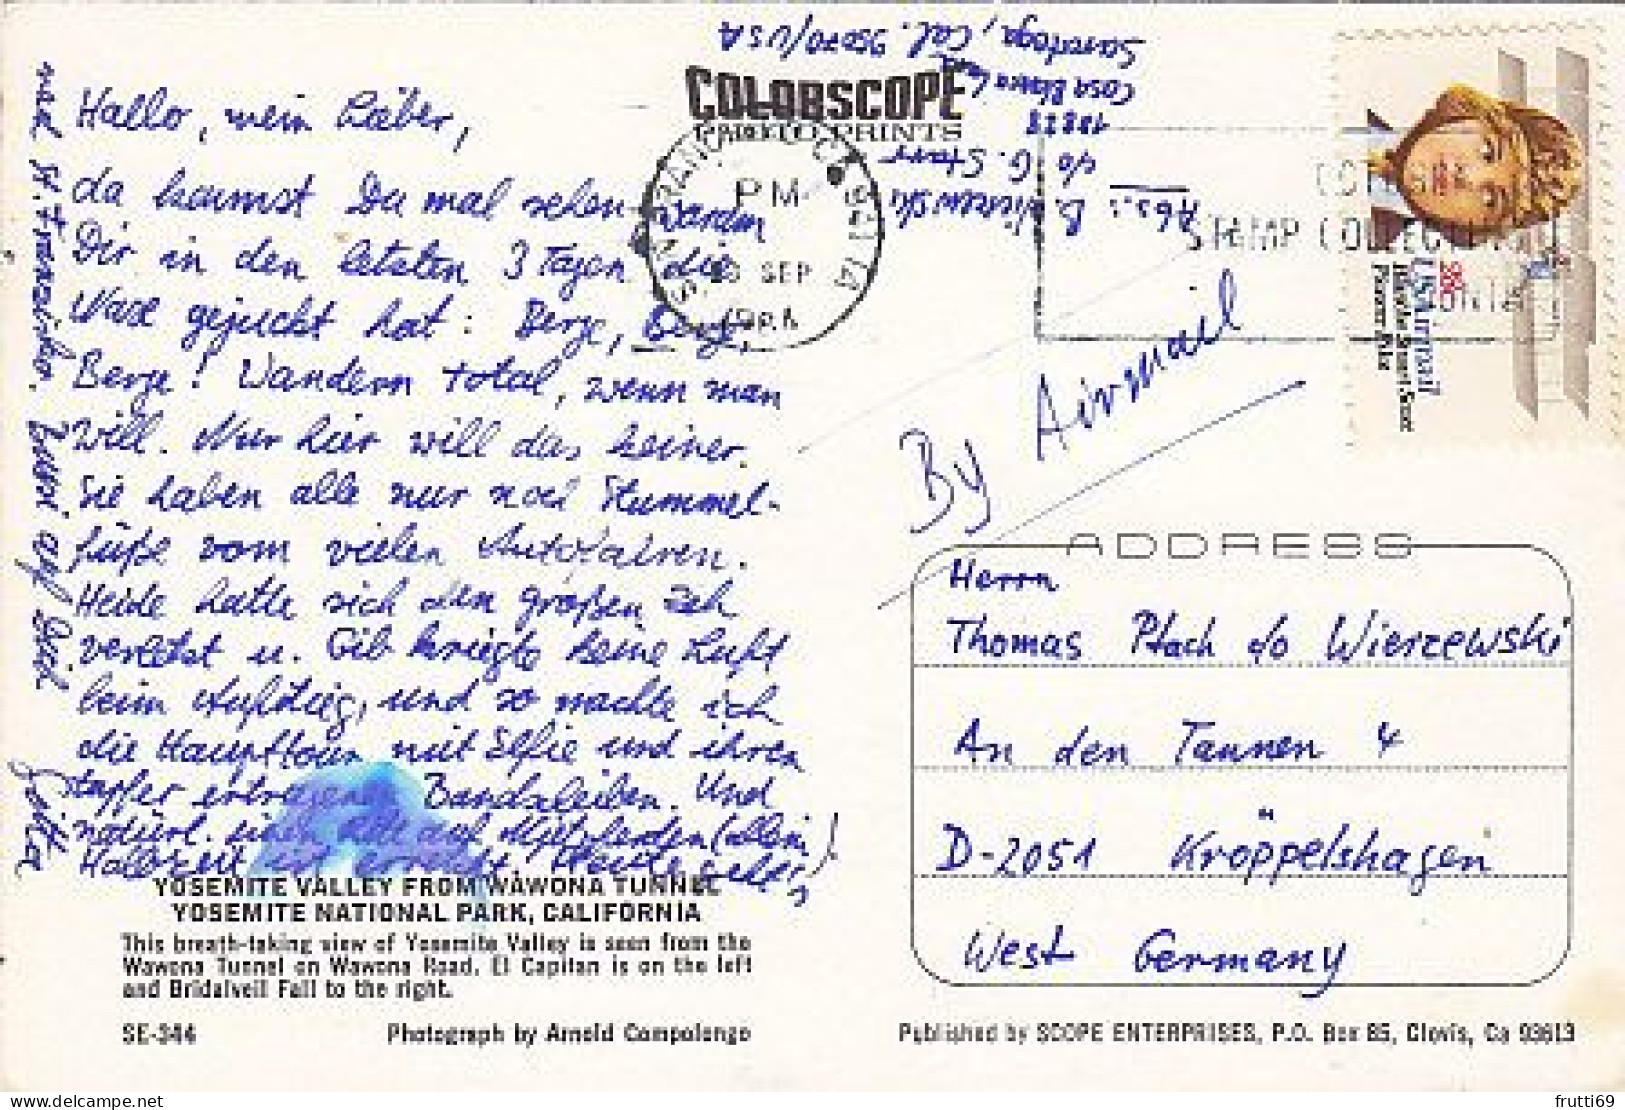 Hallo, mein Lieber,
da kannst Du mal sehen warum
Dir in den letzten 3 Tagen die
Nase gejuckt hat: Berge, Berge,
Berge! Wandern total, wenn man
will. Nur hier will das keiner.
Sie haben alle nur noch Stummel-
füße vom vielen Autofahren.
Heide hatte sich den großen Zeh
verletzt u. Gib kriegte keine Luft
beim Aufstieg, und so machte ich
die Haupttour mit Elfie und ihren
tapfer ertragenen Bandscheiben. Und
natürl. auf (allein)!
Halbzeit ist erreicht. Heute geht's
nach St. Franzisko. auf Dich
COLORSCOPE
PHOTO PRINTS
PM
SEP
Abs.: B. Wierzewski
c/o G. Starr
Casa Blanca
Saratoga, Cal. 95070/USA
STAMP COLLECTING
USAirmail
Blanche Stuart Scott
Pioneer Pilot
By Airmail
ADDRESS
Herrn
Thomas Ptach c/o Wierzewski
An den Tannen 4
D-2051 Kröppelshagen
West Germany
YOSEMITE VALLEY FROM WAWONA TUNNEL
YOSEMITE NATIONAL PARK, CALIFORNIA
This breath-taking view of Yosemite Valley is seen from the
Wawona Tunnel on Wawona Road. El Capitan is on the left
and Bridalveil Fall to the right.
SE-344 Photograph by Arnold Compolongo
Published by SCOPE ENTERPRISES, P.O. Box 85, Clovis, Ca 93613
frutti69